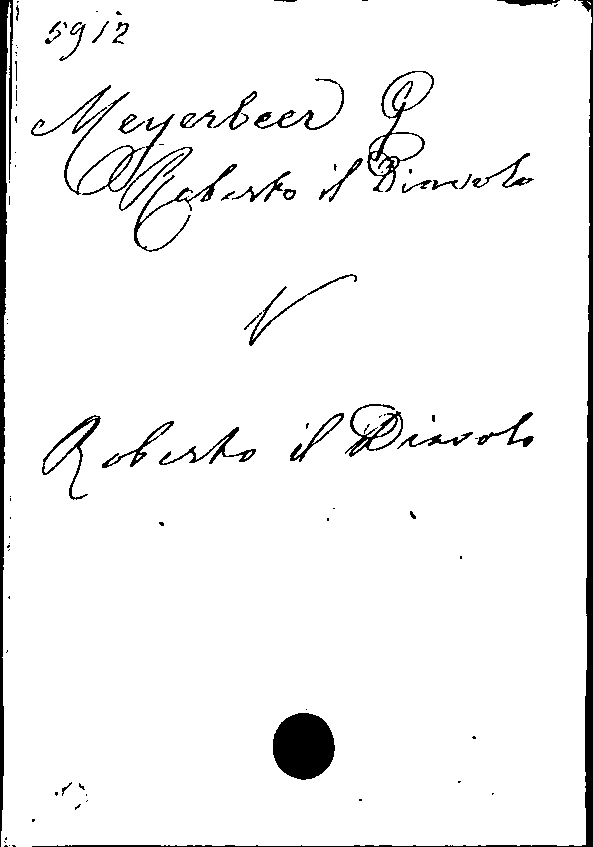 5912
Meyerbeer G
Roberto il Diavolo
V
Roberto il Diavolo